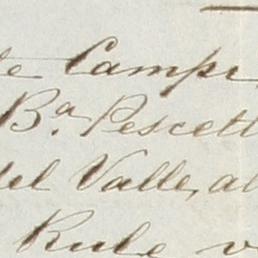 de Campe
Ba. Pescett
del Valle, al
Rule v